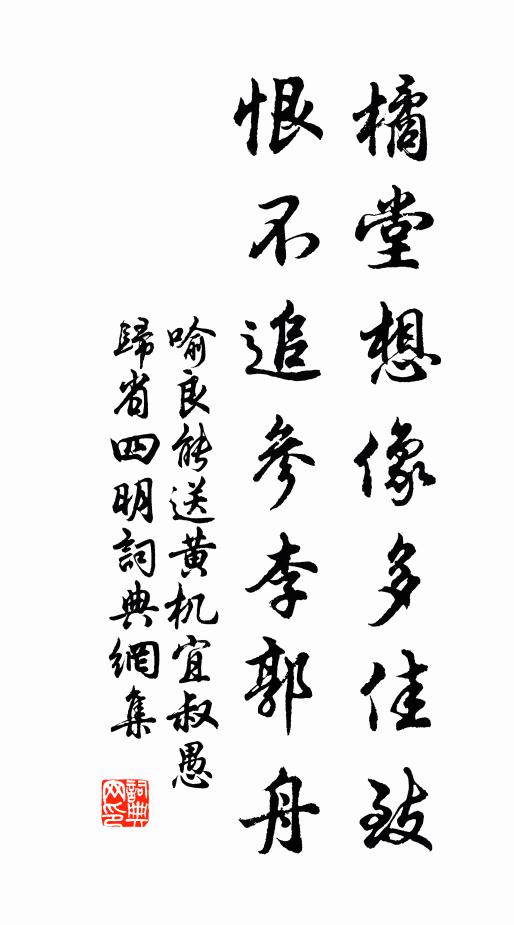 橘堂想像多佳致
恨不追參李郭舟
喻良能送黄机宜叔愚
歸省四明詞典網集
詞典
网印